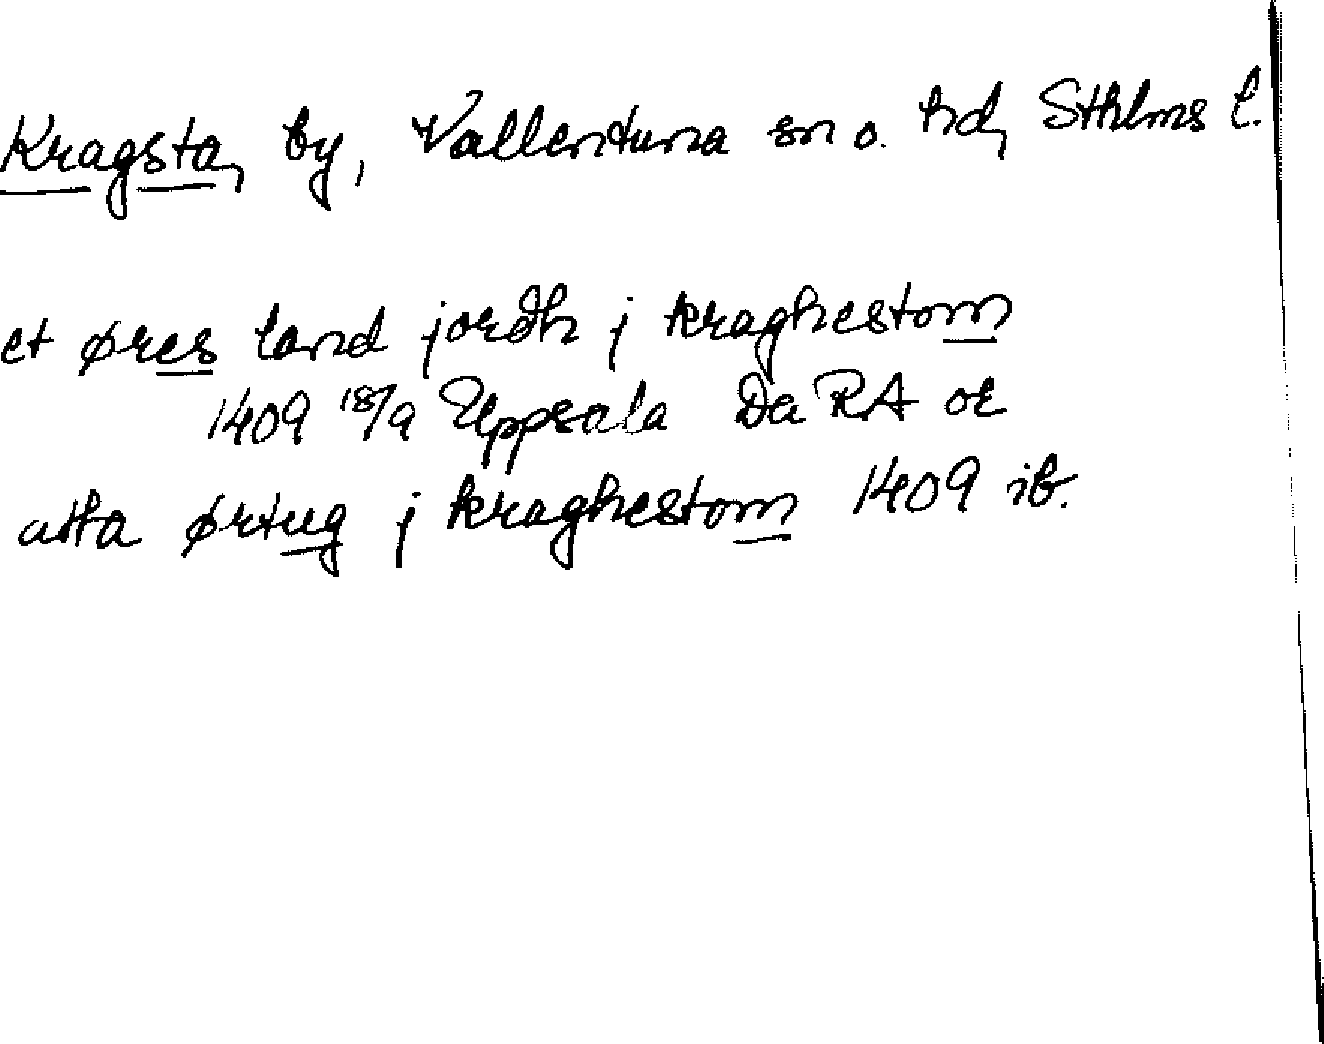 Kragsta, by, Vallentuna sn o. hd, Sthlms l.
et øres land jordh j kraghestom
1409 18/9 Uppsala Da RA or
atta ørtug j kraghestom 1409 ib.